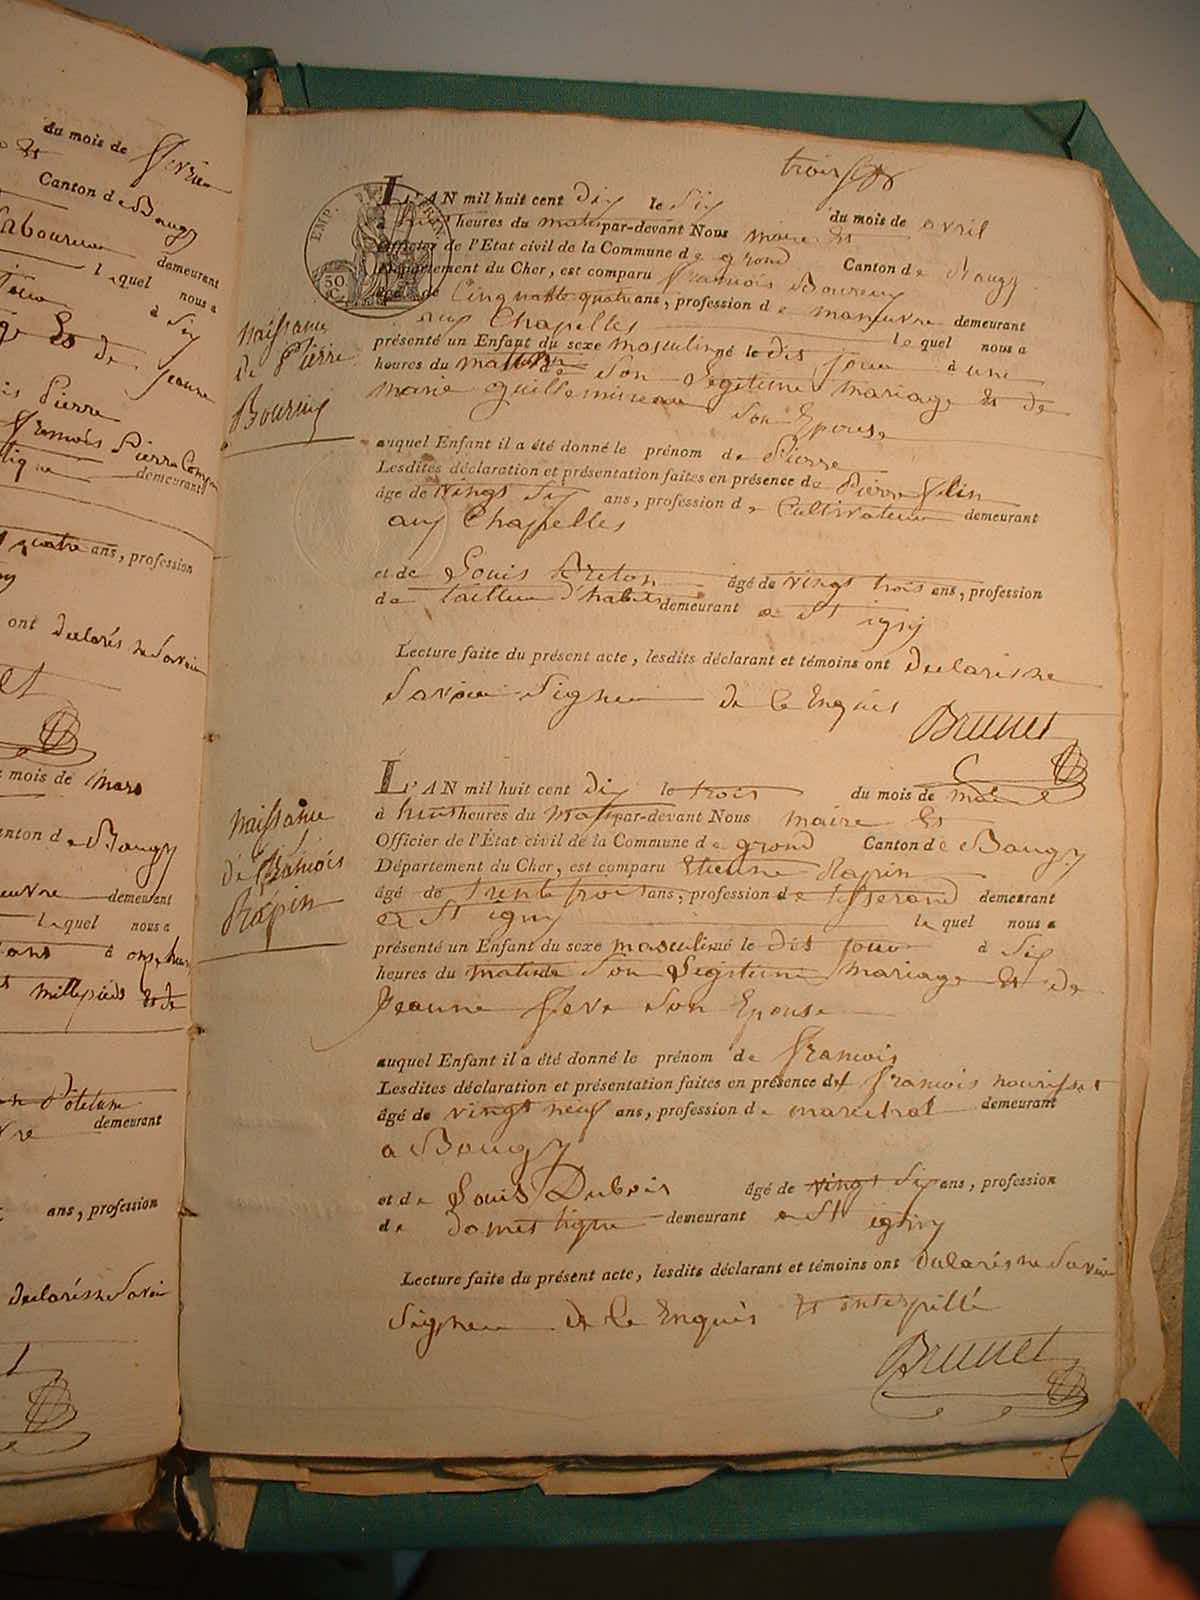 du mois de fevrier
Canton de Baugy
demeurant
lequel nous a
à Six
et de jeanne
Pierre
francois Pierre
demeurant
quatre ans, profession
ont declarés ne Savoir
mois de mars
Canton de Baugy
demeurant
lequel nous a
à onze heures
millepieds et de
demeurant
ans, profession
declarés ne Savoir
trois
EMP.
50
C.
L'AN mil huit cent Dix le Six du mois de avril
heures du matin par-devant Nous maire et
Officier de l'Etat civil de la Commune de grond Canton de Baugy
Département du Cher, est comparu francois Boureux
âgé de Cinquante quatre ans, profession de maneuvre demeurant
aux Chapelles lequel nous a
présenté un Enfant du sexe masculin né le dit jour à une
heures du matin de Son Legitime mariage et de
marie guillemineau Son Epouse
naissance
de Pierre
Boureux
auquel Enfant il a été donné le prénom de Pierre
Lesdites déclaration et présentation faites en présence de Pierre
âgé de vingt Six ans, profession de Cultivateur demeurant
aux Chapelles
et de Louis Breton âgé de vingt trois ans, profession
de tailleur d'habits demeurant a St igny
Lecture faite du présent acte, lesdits déclarant et témoins ont declarés ne
Savoir Signer de le Enquis
Brunet
L'AN mil huit cent dix le trois du mois de mai
à huit heures du matin par-devant Nous maire et
Officier de l'État civil de la Commune de grond Canton de Baugy
Département du Cher, est comparu Etienne Rapin
âgé de trente trois ans, profession de tisserand demeurant
a St igny lequel nous a
présenté un Enfant du sexe masculin né le dit jour à Six
heures du matin de Son Legitime mariage et de
Jeanne feve Son Epouse
naissance
de francois
Rapin
auquel Enfant il a été donné le prénom de francois
Lesdites déclaration et présentation faites en présence de francois
âgé de vingt neuf ans, profession de marechal demeurant
a Baugy
et de Louis Dubois âgé de vingt Six ans, profession
de domestique demeurant a St igny
Lecture faite du présent acte, lesdits déclarant et témoins ont declarés ne Savoir
Signer de le Enquis et interpellé
Brunet